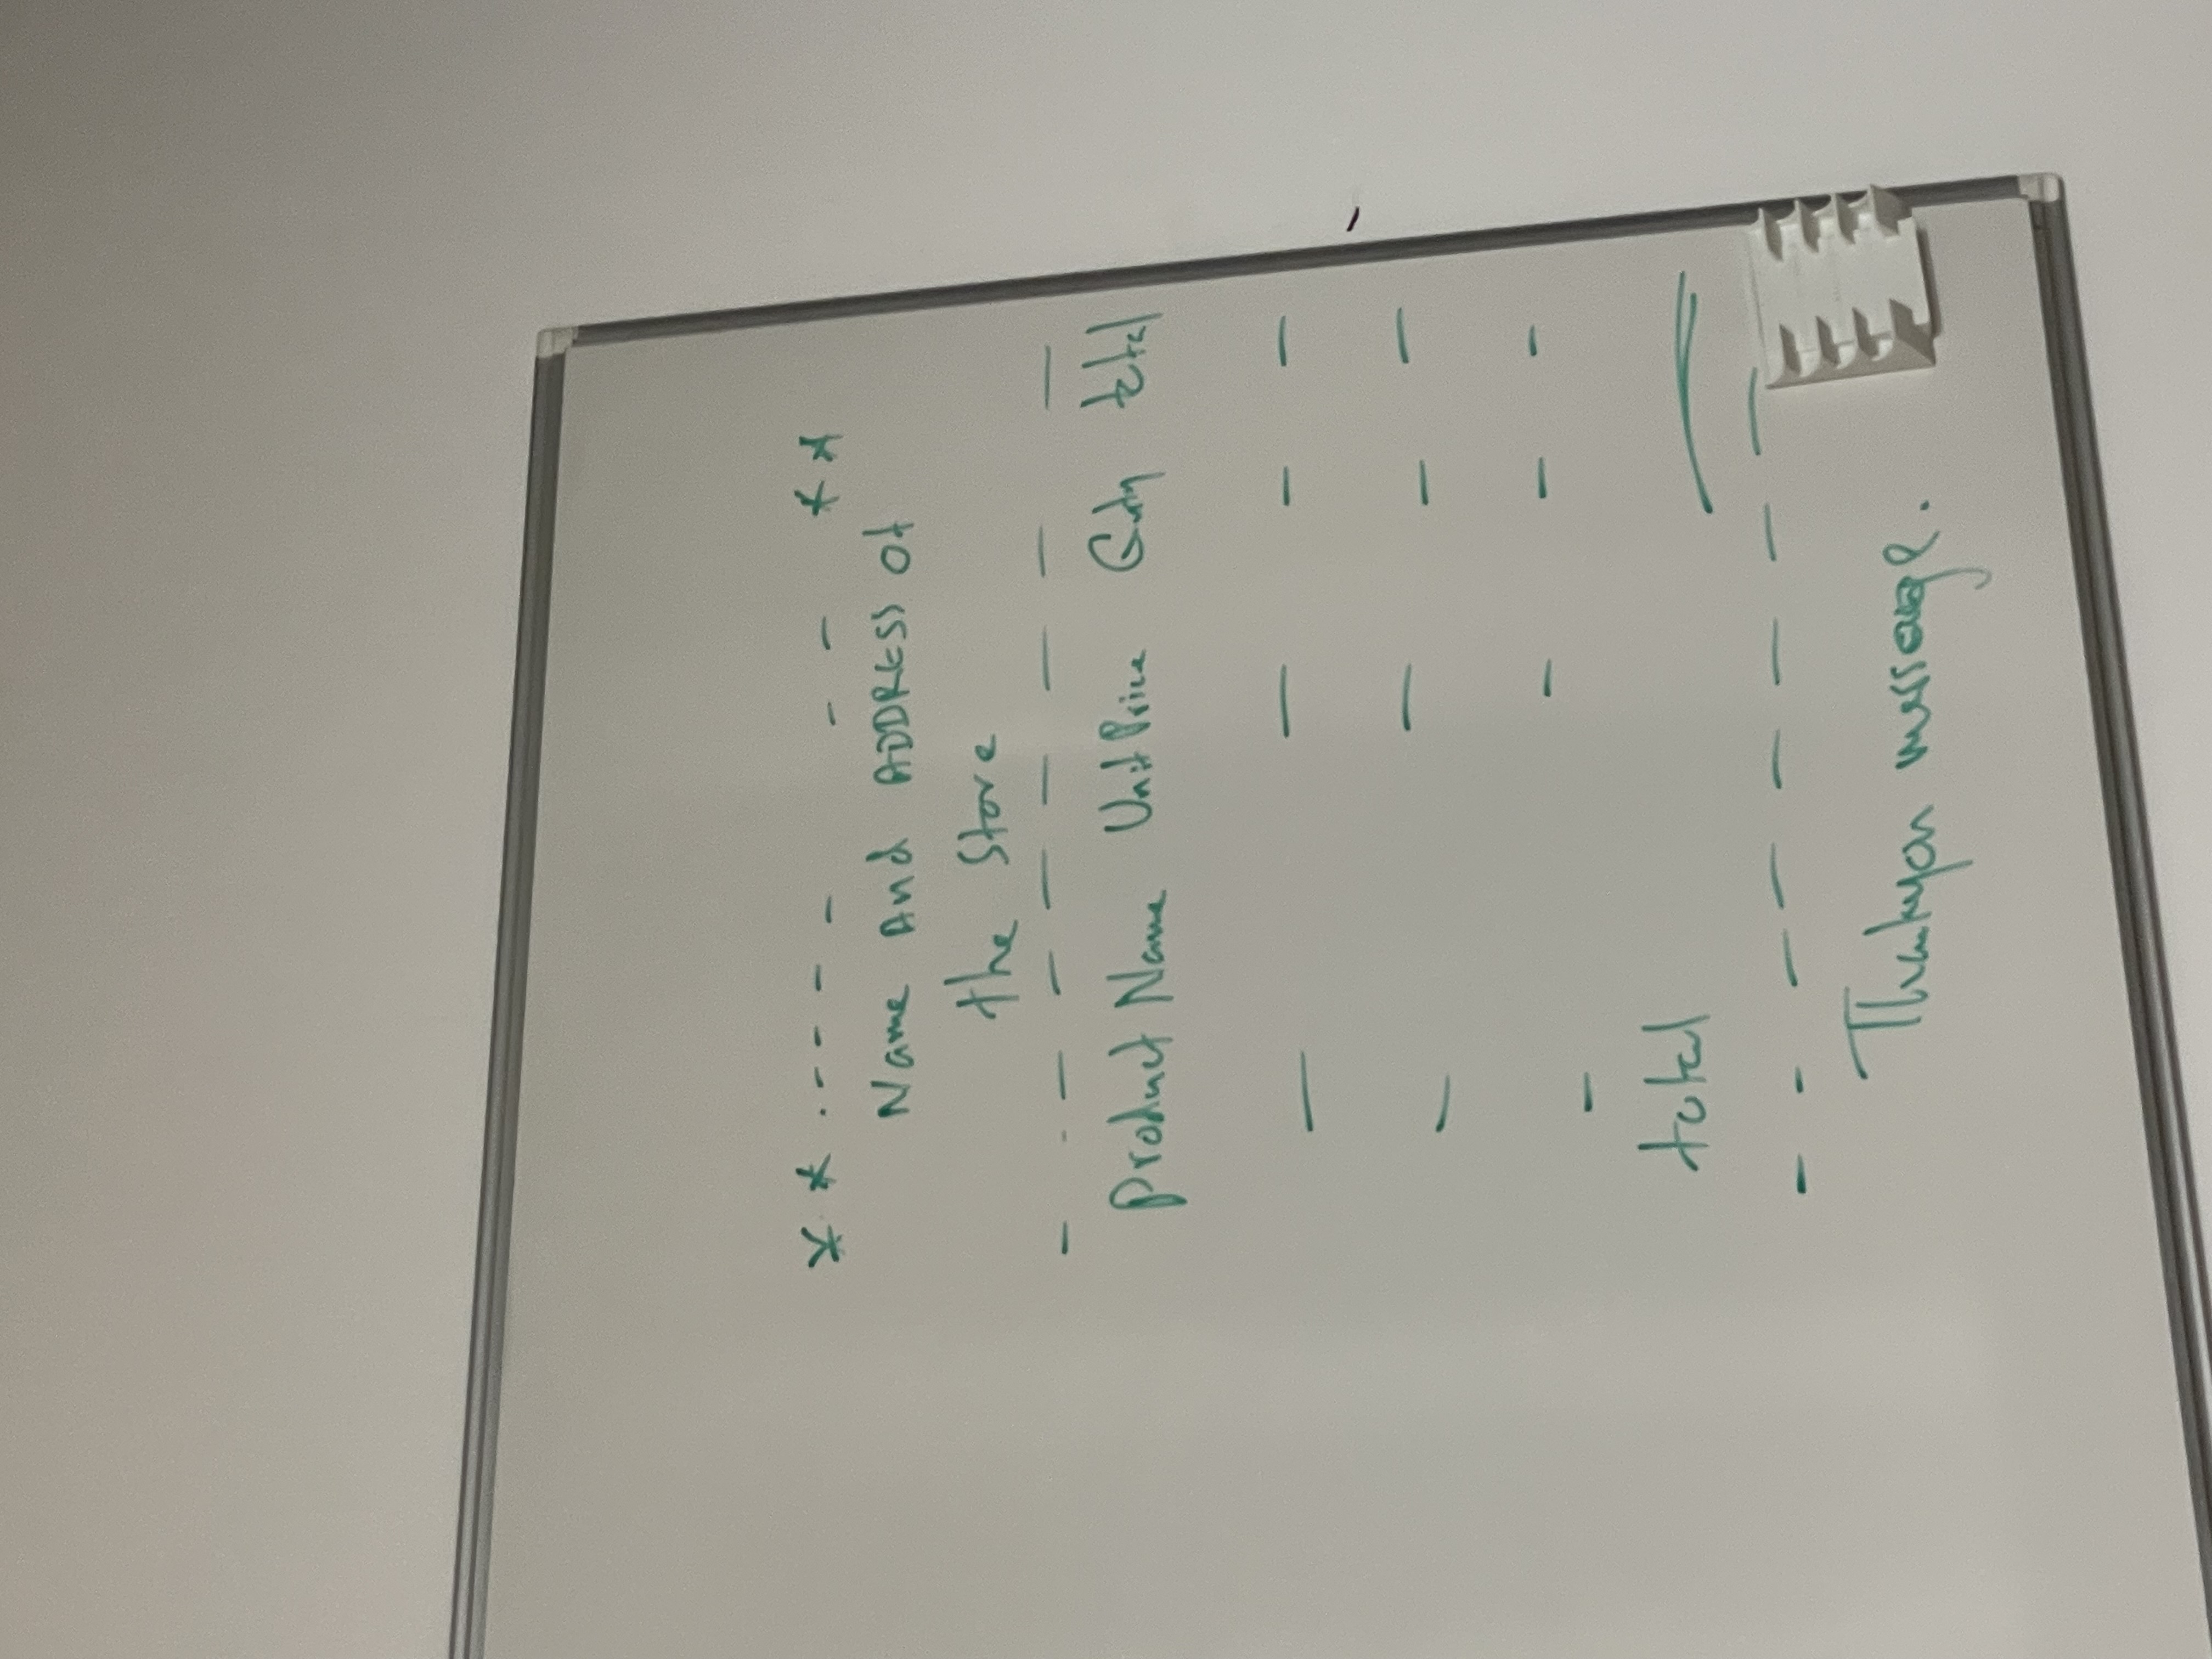 * * . - - - - - - * *
Name And ADDRESS of
the Store
- - - - - - - - -
Product Name Unit Price Qnty total
— — - -
- — - -
- - - -
total
- - - - - - - -
Thankyou message.